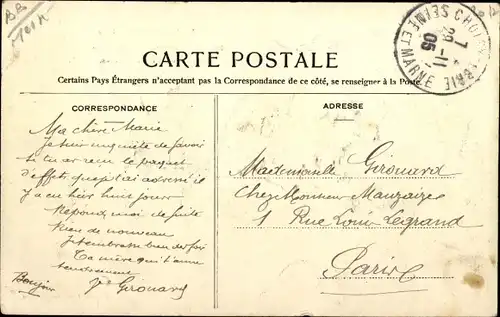 CARTE POSTALE
Certains Pays Étrangers n'acceptant pas la Correspondance de ce côté, se renseigner à la Poste
CORRESPONDANCE
ADRESSE
Ma chère Marie
Je suis inquiète de savoir
si tu as reçu le paquet
d'effets que je t'ai adressé il
y a eu hier huit jours
Réponds moi de suite
Rien de nouveau
Je t'embrasse bien des fois
Ta mère qui t'aime
tendrement
Bonjour
Vve Girouard
Mademoiselle Girouard
Chez Monsieur Mauzaize
1 Rue Louis Legrand
Paris
SEINE ET MARNE
29-11
05